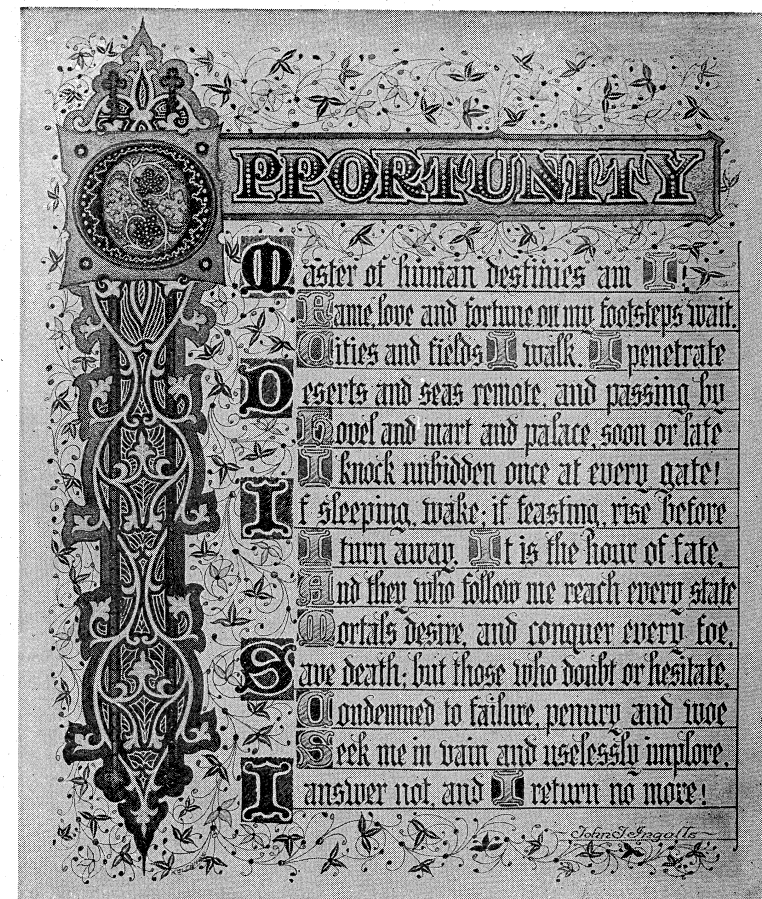 OPPORTUNITY
Master of human destinies am I!
Fame, love and fortune on my footsteps wait.
Cities and fields I walk. I penetrate
Deserts and seas remote, and passing by
Hovel and mart and palace, soon or late
I knock unbidden once at every gate!
If sleeping, wake; if feasting, rise before
I turn away. It is the hour of fate,
And they who follow me reach every state
Mortals desire, and conquer every foe,
Save death; but those who doubt or hesitate,
Condemned to failure, penury and woe
Seek me in vain and uselessly implore,
I answer not, and I return no more!
John J. Ingalls